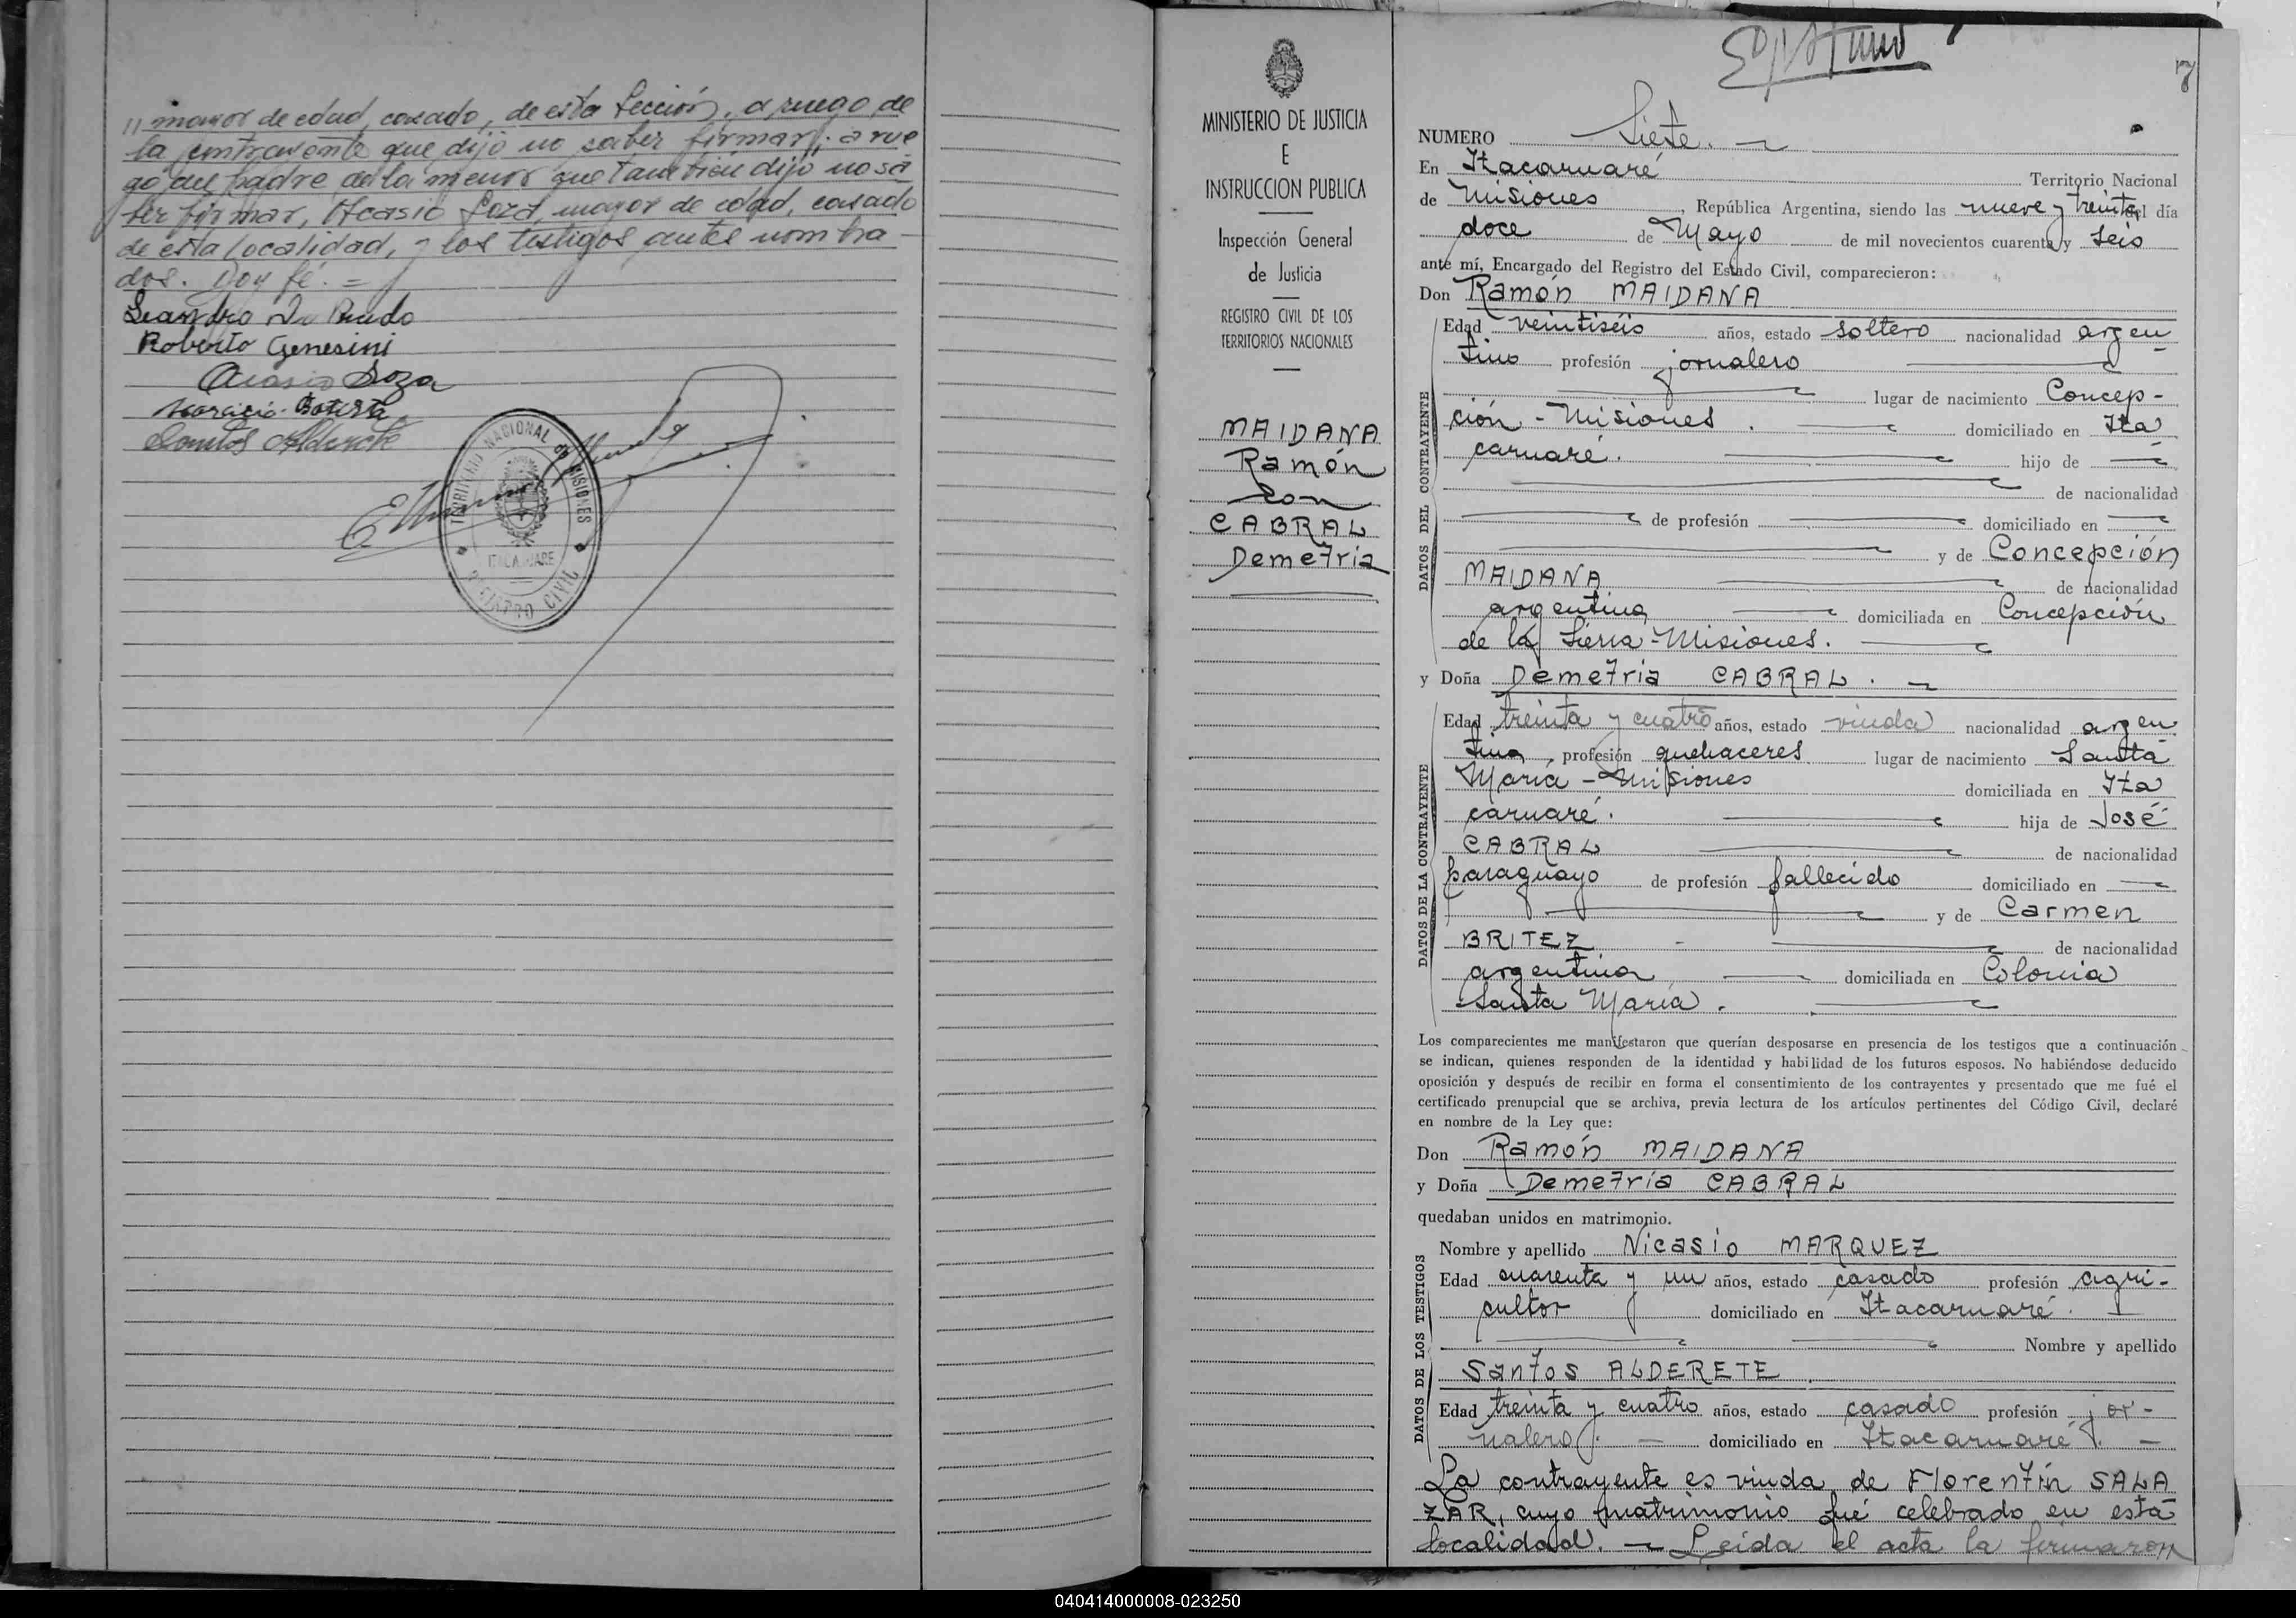 // mayor de edad, casado, de esta Sección, a ruego de
la contrayente que dijo no saber firmar; a rue
go del padre de la menor que tambien dijo no sa
ber firmar, Acasio Soza, mayor de edad, casado
de esta localidad, y los testigos antes nombra-
dos. Doy fé. =
Leandro
Roberto Genesini
Acasio Soza
Batista
Santos Alderete
TERRITORIO NACIONAL DE MISIONES
ITACARUARE
REGISTRO CIVIL
MINISTERIO DE JUSTICIA
E
INSTRUCCION PUBLICA
Inspección General
de Justicia
REGISTRO CIVIL DE LOS
TERRITORIOS NACIONALES
MAIDANA
Ramón
con
CABRAL
Demetria
7
NUMERO Siete.
En Itacaruaré Territorio Nacional
de Misiones, República Argentina, siendo las nueve y treinta del día
doce de Mayo de mil novecientos cuarenta y seis
ante mí, Encargado del Registro del Estado Civil, comparecieron:
Don Ramón MAIDANA
DATOS DEL CONTRAYENTE
Edad veintiséis años, estado soltero nacionalidad argen
tino profesión jornalero
lugar de nacimiento Concep-
ción - Misiones. domiciliado en Ita
caruaré. hijo de
de nacionalidad
de profesión domiciliado en
y de Concepción
MAIDANA de nacionalidad
argentina domiciliada en Concepción
de la Sierra - Misiones.
y Doña Demetria CABRAL.
DATOS DE LA CONTRAYENTE
Edad treinta y cuatro años, estado viuda nacionalidad argen
tina, profesión quehaceres lugar de nacimiento Santa
María - Misiones domiciliada en Ita
caruaré. hija de José
CABRAL de nacionalidad
paraguayo de profesión fallecido domiciliado en
y de Carmen
BRITEZ de nacionalidad
argentina domiciliada en Colonia
Santa María.
Los comparecientes me manifestaron que querían desposarse en presencia de los testigos que a continuación
se indican, quienes responden de la identidad y habilidad de los futuros esposos. No habiéndose deducido
oposición y después de recibir en forma el consentimiento de los contrayentes y presentado que me fué el
certificado prenupcial que se archiva, previa lectura de los artículos pertinentes del Código Civil, declaré
en nombre de la Ley que:
Don Ramón MAIDANA
y Doña Demetria CABRAL
quedaban unidos en matrimonio.
DATOS DE LOS TESTIGOS
Nombre y apellido Nicasio MARQUEZ
Edad cuarenta y un años, estado casado profesión agri-
cultor domiciliado en Itacaruaré.
Nombre y apellido
Santos ALDERETE.
Edad treinta y cuatro años, estado casado profesión jor-
nalero. domiciliado en Itacaruaré.
La contrayente es viuda de Florentín SALA
ZAR, cuyo matrimonio fué celebrado en esta
localidad. Leída el acta la firmaron
040414000008-023250